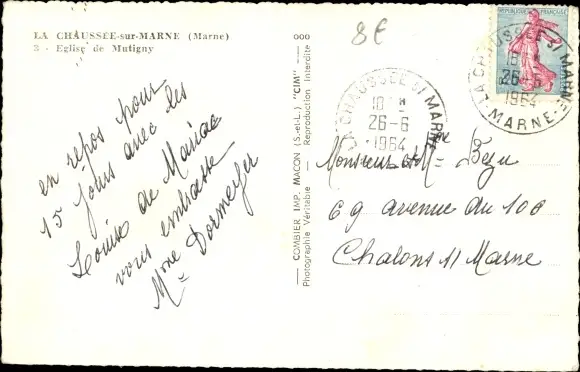 LA CHAUSSÉE-sur-MARNE (Marne)
3 - Eglise de Mutigny
en repos pour
15 jours avec les
Louise de Marillac
vous embrasse
Mme Dormeyer
COMBIER IMP. MACON (S.-et-L.) "CIM"
Photographie Véritable - Reproduction Interdite
8€
REPUBLIQUE FRANÇAISE
LA CHAUSSÉE S/ MARNE
18 H
26-6
1964
MARNE
LA CHAUSSÉE S/ MARNE
18 H
26-6
1964
MARNE
Monsieur et Mme
69 avenue du 106
Chalons s/ Marne